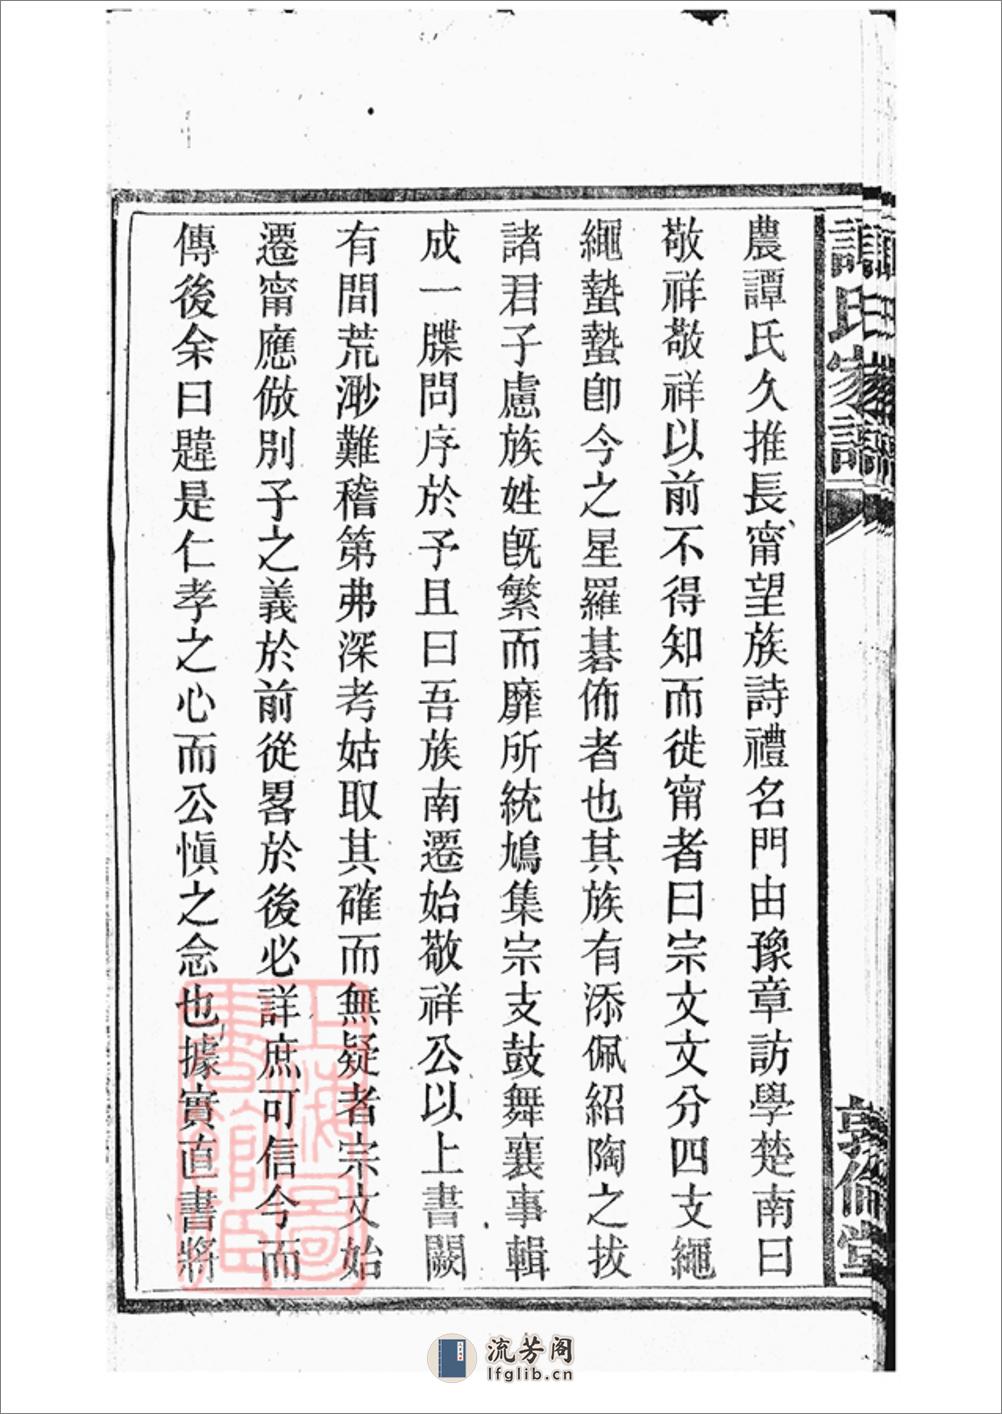 譚氏家譜
敦倫堂
農譚氏久推長甯望族詩禮名門由豫章訪學楚南曰
敬祥敬祥以前不得知而徙甯者曰宗文文分四支繩
繩蟄蟄卽今之星羅碁佈者也其族有添佩紹陶之拔
諸君子慮族姓旣繁而靡所統鳩集宗支鼓舞襄事輯
成一牒問序於予且曰吾族南遷始敬祥公以上書闕
有間荒渺難稽第弗深考姑取其確而無疑者宗文始
遷甯應倣別子之義於前從畧於後必詳庶可信今而
傳後余曰韙是仁孝之心而公愼之念也據實直書將
上海圖書館藏
流芳阁
lfglib.cn